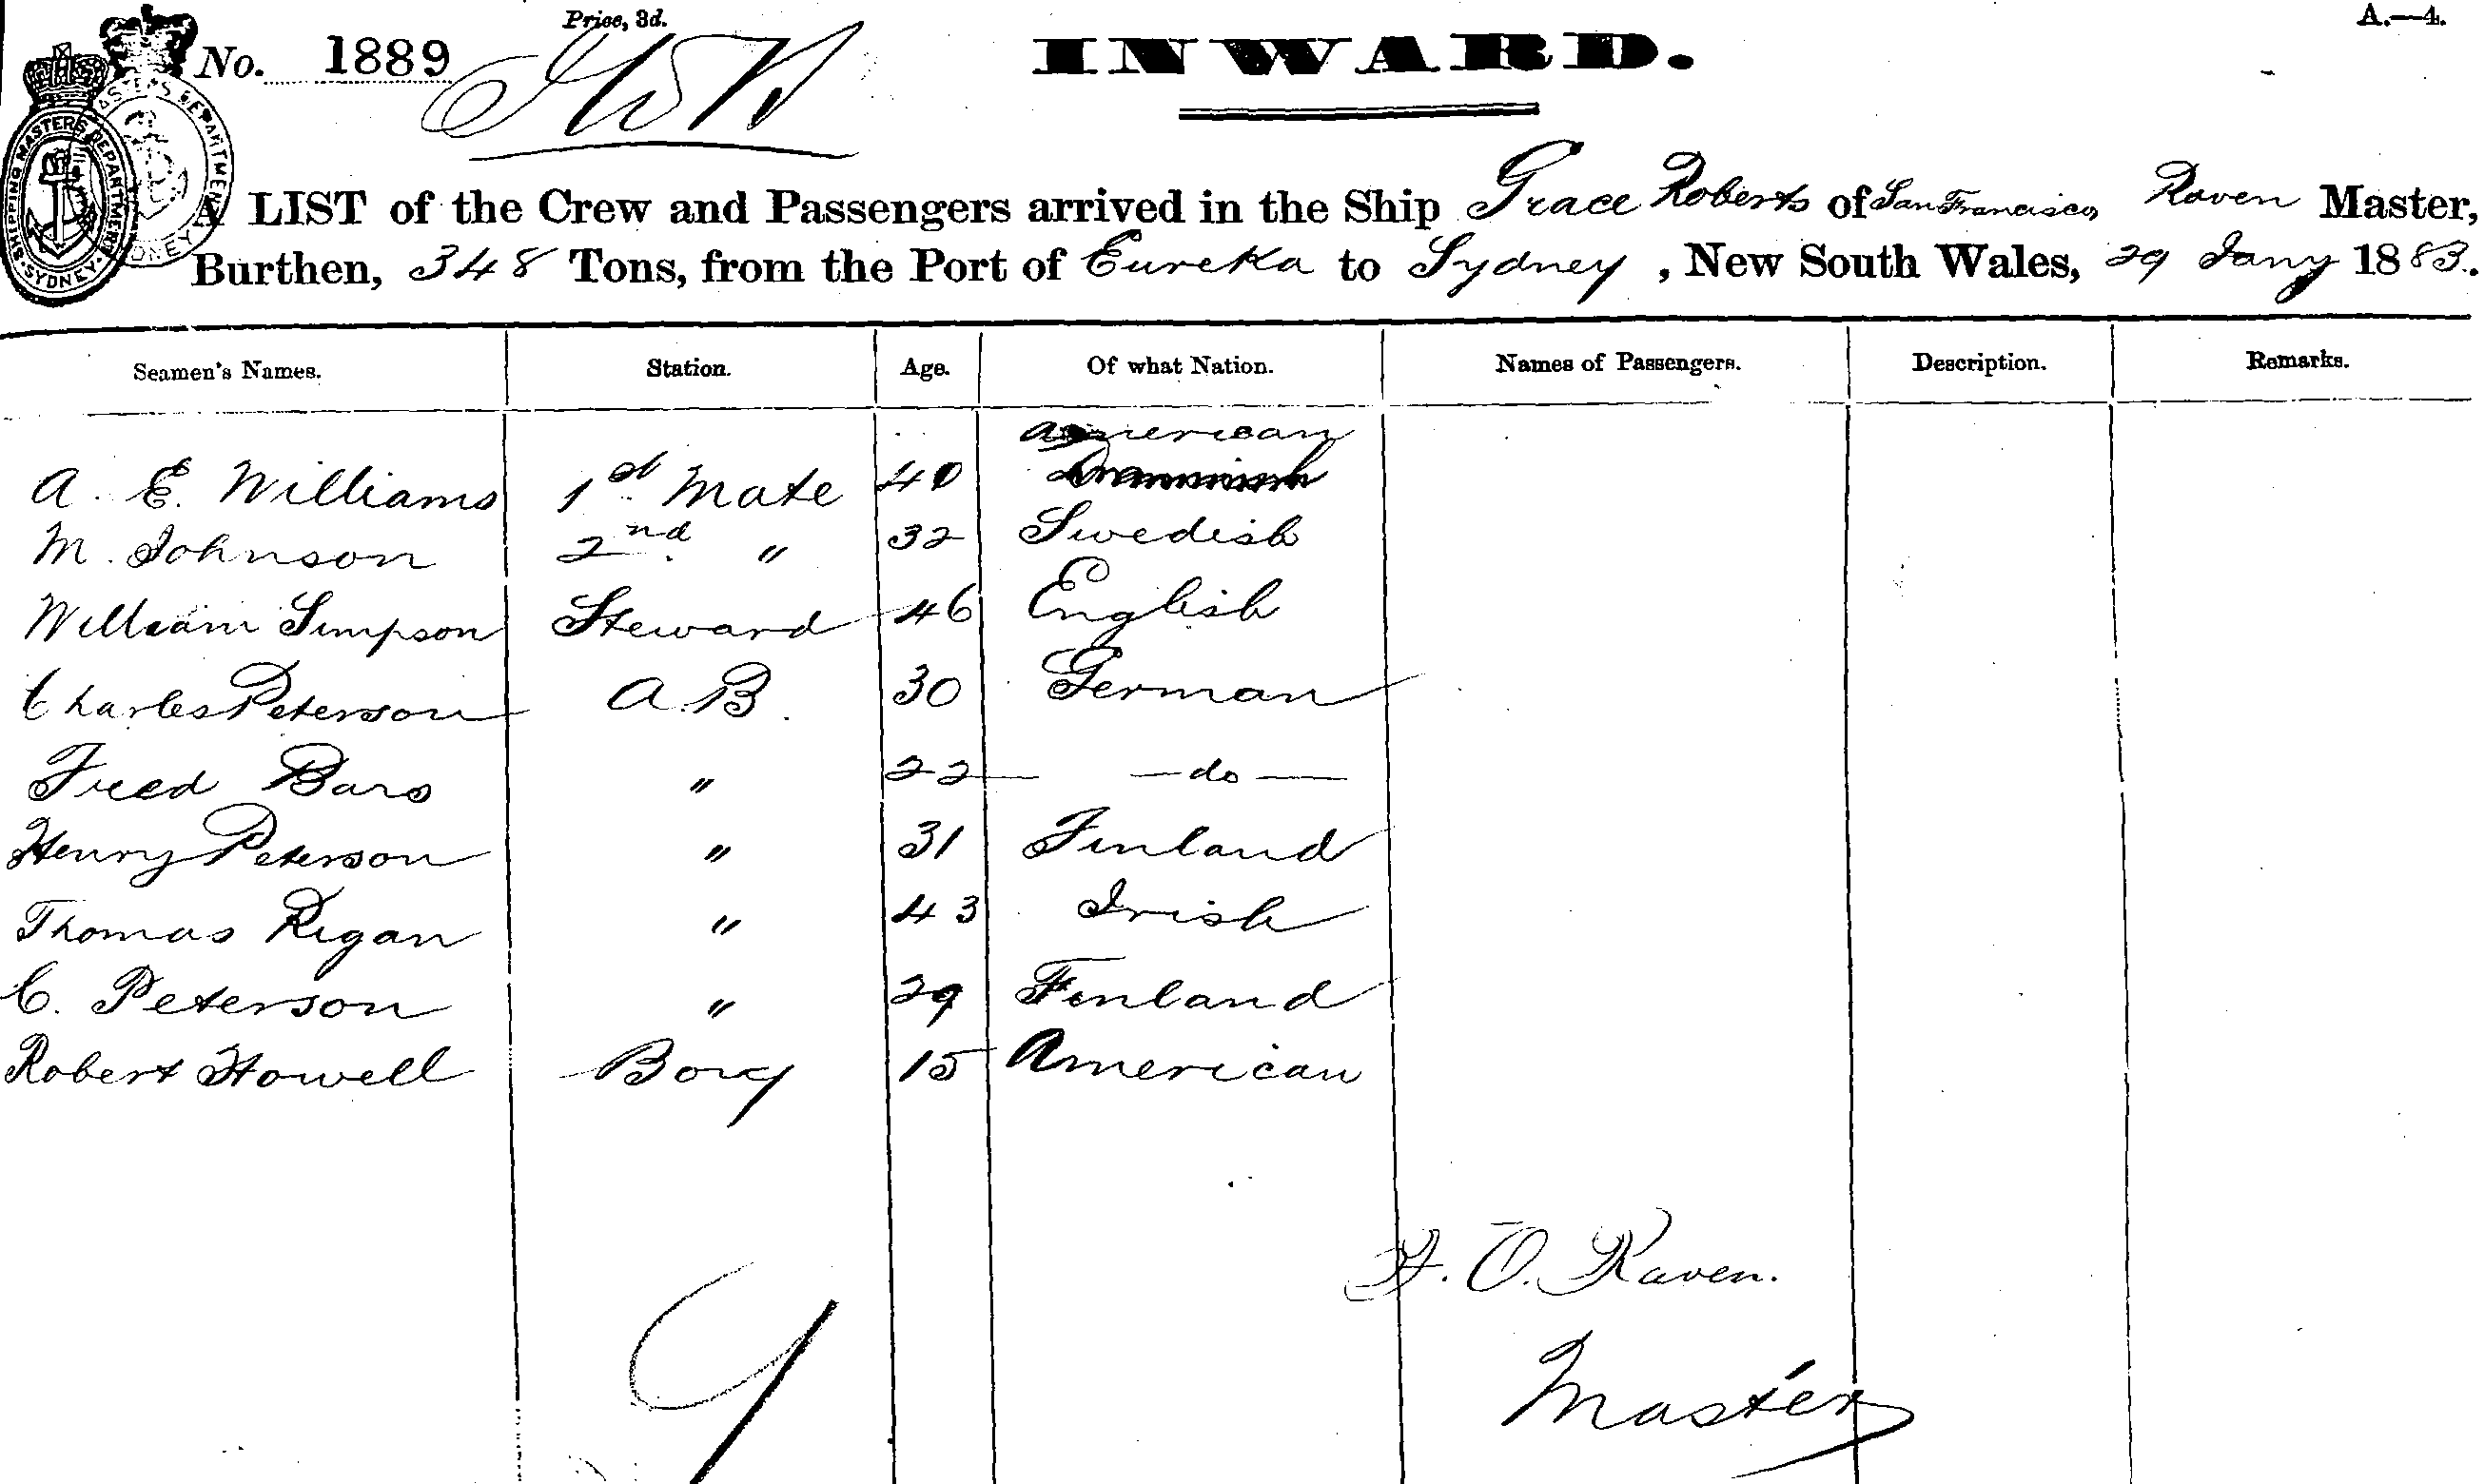 Price, 3d.
A.—4.
No. 1889
INWARD.
A LIST of the Crew and Passengers arrived in the Ship Grace Roberts of San Francisco, Raven Master,
Burthen, 348 Tons, from the Port of Eureka to Sydney, New South Wales, 29 Jany 1883.
SHIPPING MASTER'S DEPARTMENT SYDNEY
Seamen's Names. Station. Age. Of what Nation. Names of Passengers. Description. Remarks.
American
A. E. Williams 1st Mate 40
M. Johnson 2nd " 32 Swedish
William Simpson Steward 46 English
Charles Peterson A.B. 30 German
Fred Bars " 22 — do —
Henry Peterson " 31 Finland
Thomas Rigan " 43 Irish
C. Peterson " 29 Finland
Robert Howell Boy 15 American
9
H. O. Raven.
Master